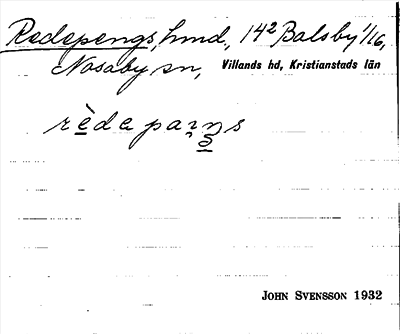 Redepengs, hmd., 14² Balsby 1/16,
Nosaby sn, Villands hd, Kristianstads län
rèdepaŋs
JOHN SVENSSON 1932